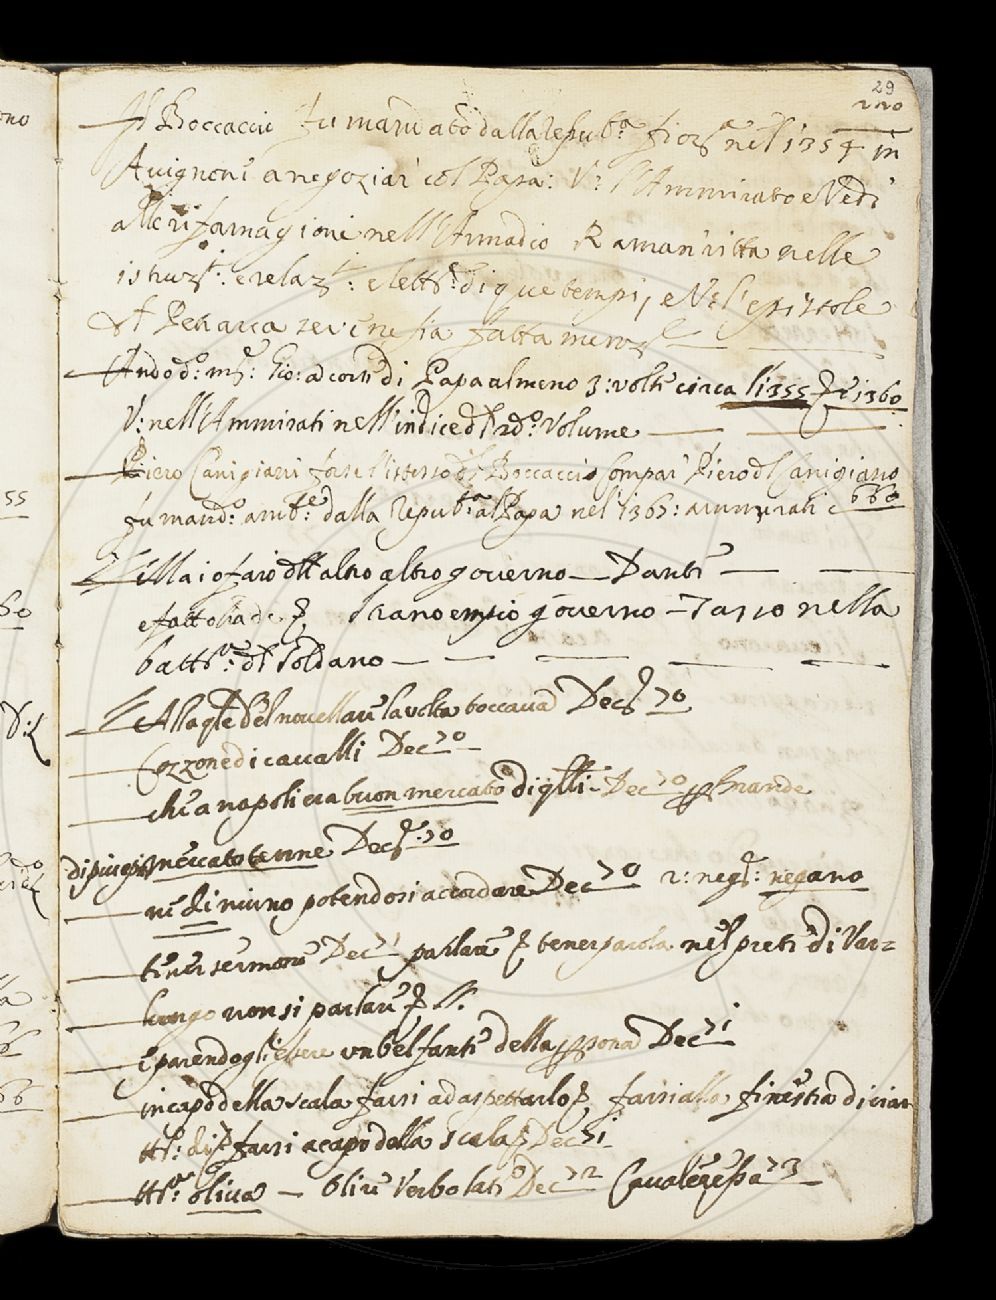 29
Il Boccaccio fu mandato dalla Repub.a fior.a nel 1354 in
Avignone a negoziar col Papa: V: l'Ammirato e Vedi
alle riformagioni nell'Armadio R a man ritta nelle
istruz.: e relaz.: e lett.e di que tempi, e V: l'epistole
Petrarca se ve ne sia fatta menz.e
Andò d.o m.s: Gio: a corte di Papa almeno 3: volte circa l'1355 e 1360
V: nell'Ammirati nell'indice del 2d.o Volume
Piero Canigiani forse l'istesso del Boccaccio Compar Piero del Canigiano
fu mand.o amb.re dalla Repub.a al Papa nel 1365: ammirati c 660
E illa io farò altro altro governo — Dante
e fatto ha de strano empio governo — Tasso nella
batt.a: del Soldano
Alla qle del novellare la volta toccava Dec 70
Cozzone di cavalli Dec 70
che a napoli era buon mercato di qlli - Dec 70 grande
di più mercato tenne Dec 70
ne di niuno potendosi accordare Dec 70 2: neg: negano
tener sermone Dec 71 parlare tener parola nel prete di Var=
lungo non si parlare
e parendogli essere un bel fante della persona Dec 71
in capo della scala farsi ad aspettarlo farsi alla finestra
farsi a capo della scala Dec 71
oliva — Dec 72 Cavaleressa 73